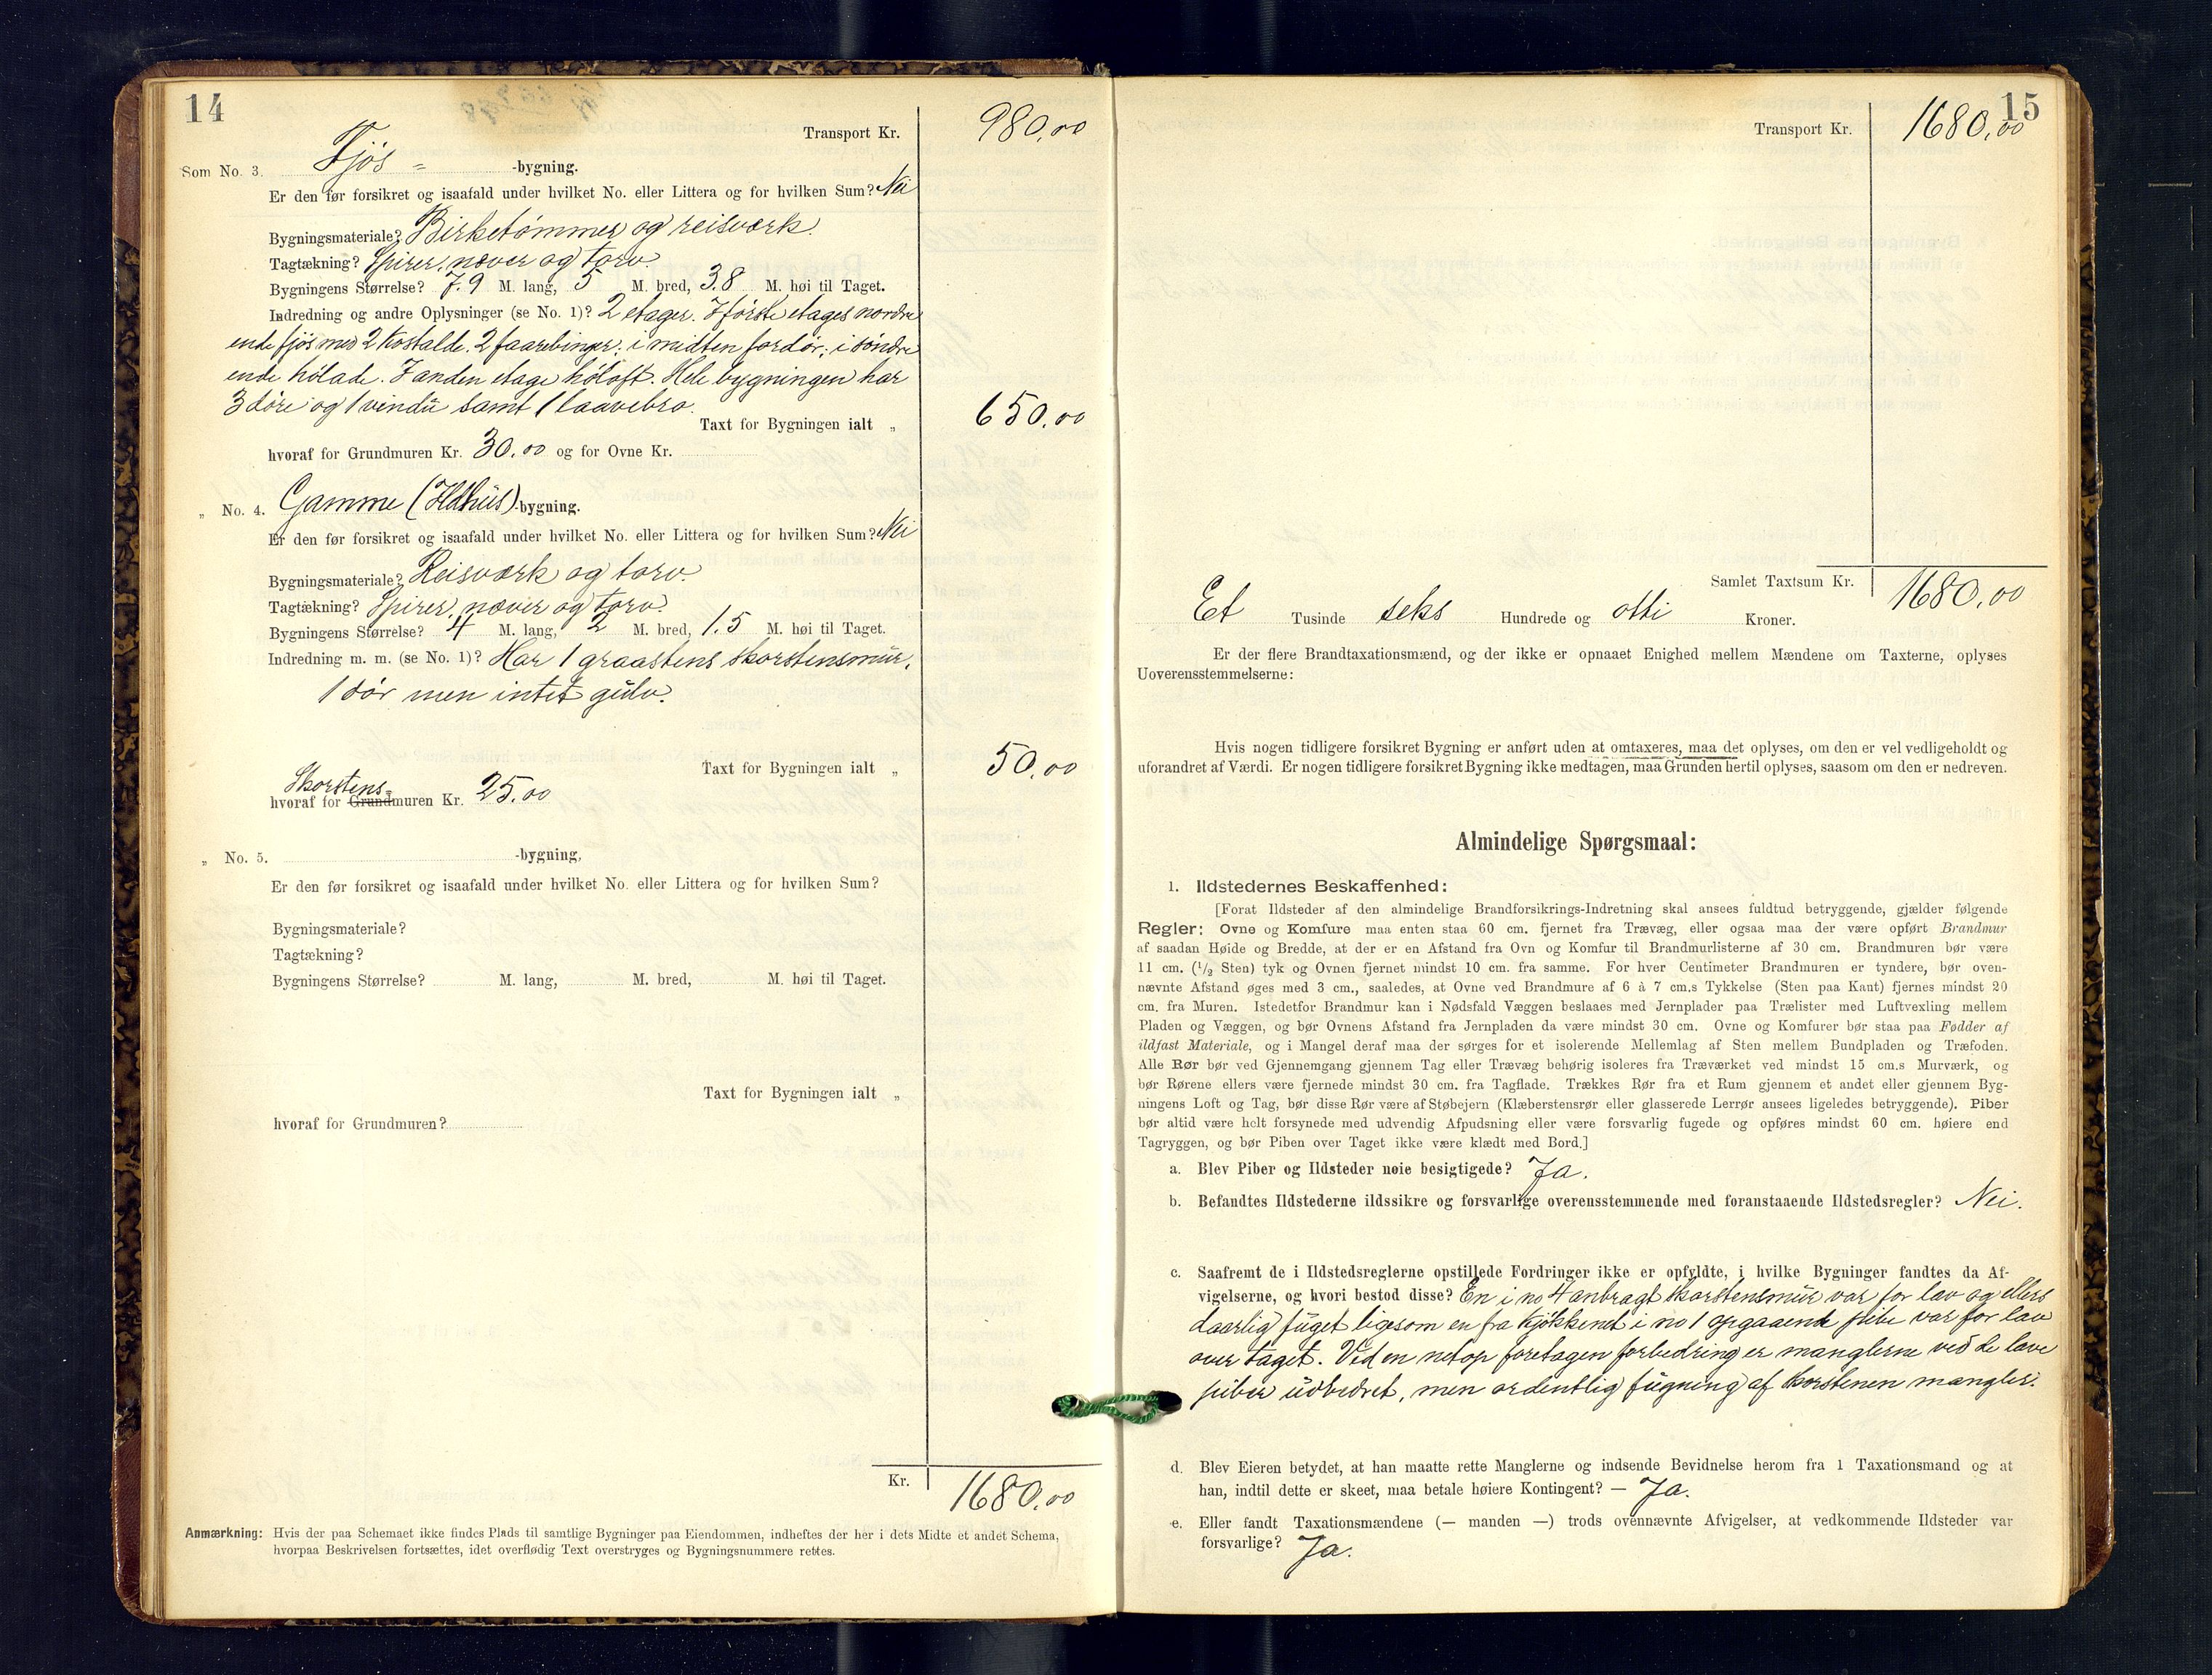 14
Transport Kr. 980.00
Som No. 3. Fjøs = -bygning.
Er den før forsikret og isaafald under hvilket No. eller Littera og for hvilken Sum? Nei
Bygningsmateriale? Birketømmer og reisværk.
Tagtækning? Spirer, næver og torv.
Bygningens Størrelse? 7.9 M. lang, 5 M. bred, 3.8 M. høi til Taget.
Indredning og andre Oplysninger (se No. 1)? 2 etager. I første etages nordre
ende fjøs med 2 kostalde. 2 faarebinger; i midten fordør; i søndre
ende hølade. I anden etage høloft. Hele bygningen har
3 døre og 1 vindu samt 1 laavebro.
Taxt for Bygningen ialt „ 650.00
hvoraf for Grundmuren Kr. 30.00 og for Ovne Kr.
„ No. 4. Gamme (Ildhus) -bygning.
Er den før forsikret og isaafald under hvilket No. eller Littera og for hvilken Sum? Nei
Bygningsmateriale? Reisværk og torv.
Tagtækning? Spirer, næver og torv.
Bygningens Størrelse? 4 M. lang, 2 M. bred, 1.5 M. høi til Taget.
Indredning m. m. (se No. 1)? Har 1 graastens skorstensmur,
1 dør men intet gulv.
Taxt for Bygningen ialt „ 50.00
Skorstens=
hvoraf for Grundmuren Kr. 25.00
„ No. 5. -bygning,
Er den før forsikret og isaafald under hvilket No. eller Littera og for hvilken Sum?
Bygningsmateriale?
Tagtækning?
Bygningens Størrelse? M. lang, M. bred, M. høi til Taget.
Taxt for Bygningen ialt „
hvoraf for Grundmuren?
Kr. 1680.00
Anmærkning: Hvis der paa Schemaet ikke findes Plads til samtlige Bygninger paa Eiendommen, indheftes der her i dets Midte et andet Schema,
hvorpaa Beskrivelsen fortsættes, idet overflødig Text overstryges og Bygningsnummere rettes.
15
Transport Kr. 1680.00
Samlet Taxtsum Kr. 1680.00
Et Tusinde seks Hundrede og otti Kroner.
Er der flere Brandtaxationsmænd, og der ikke er opnaaet Enighed mellem Mændene om Taxterne, oplyses
Uoverensstemmelserne:
Hvis nogen tidligere forsikret Bygning er anført uden at omtaxeres, maa det oplyses, om den er vel vedligeholdt og
uforandret af Værdi. Er nogen tidligere forsikret Bygning ikke medtagen, maa Grunden hertil oplyses, saasom om den er nedreven.
Almindelige Spørgsmaal:
1. Ildstedernes Beskaffenhed:
[Forat Ildsteder af den almindelige Brandforsikrings-Indretning skal ansees fuldtud betryggende, gjælder følgende
Regler: Ovne og Komfure maa enten staa 60 cm. fjernet fra Trævæg, eller ogsaa maa der være opført Brandmur
af saadan Høide og Bredde, at der er en Afstand fra Ovn og Komfur til Brandmurlisterne af 30 cm. Brandmuren bør være
11 cm. (1/2 Sten) tyk og Ovnen fjernet mindst 10 cm. fra samme. For hver Centimeter Brandmuren er tyndere, bør oven-
nævnte Afstand øges med 3 cm., saaledes, at Ovne ved Brandmure af 6 à 7 cm.s Tykkelse (Sten paa Kant) fjernes mindst 20
cm. fra Muren. Istedetfor Brandmur kan i Nødsfald Væggen beslaaes med Jernplader paa Trælister med Luftvexling mellem
Pladen og Væggen, og bør Ovnens Afstand fra Jernpladen da være mindst 30 cm. Ovne og Komfurer bør staa paa Fødder af
ildfast Materiale, og i Mangel deraf maa der sørges for et isolerende Mellemlag af Sten mellem Bundpladen og Træfoden.
Alle Rør bør ved Gjennemgang gjennem Tag eller Trævæg behørig isoleres fra Træværket ved mindst 15 cm.s Murværk, og
bør Rørene ellers være fjernede mindst 30 cm. fra Tagflade. Trækkes Rør fra et Rum gjennem et andet eller gjennem Byg-
ningens Loft og Tag, bør disse Rør være af Støbejern (Klæberstensrør eller glasserede Lerrør ansees ligeledes betryggende). Piber
bør altid være helt forsynede med udvendig Afpudsning eller være forsvarlig fugede og opføres mindst 60 cm. høiere end
Tagryggen, og bør Piben over Taget ikke være klædt med Bord.]
a. Blev Piber og Ildsteder nøie besigtigede? Ja.
b. Befandtes Ildstederne ildssikre og forsvarlige overensstemmende med foranstaaende Ildstedsregler? Nei.
c. Saafremt de i Ildstedsreglerne opstillede Fordringer ikke er opfyldte, i hvilke Bygninger fandtes da Af-
vigelserne, og hvori bestod disse? En i no 4 anbragt skorstensmur var for lav og ellers
daarlig fuget ligesom en fra kjøkkenet i no 1 opgaaende pibe var for lav
over taget. Ved en netop foretagen forbedring er manglerne ved de lave
piber udbedret, men ordentlig fugning af skorstenen mangler.
d. Blev Eieren betydet, at han maatte rette Manglerne og indsende Bevidnelse herom fra 1 Taxationsmand og at
han, indtil dette er skeet, maa betale høiere Kontingent? — Ja.
e. Eller fandt Taxationsmændene (— manden —) trods ovennævnte Afvigelser, at vedkommende Ildsteder var
forsvarlige? Ja.